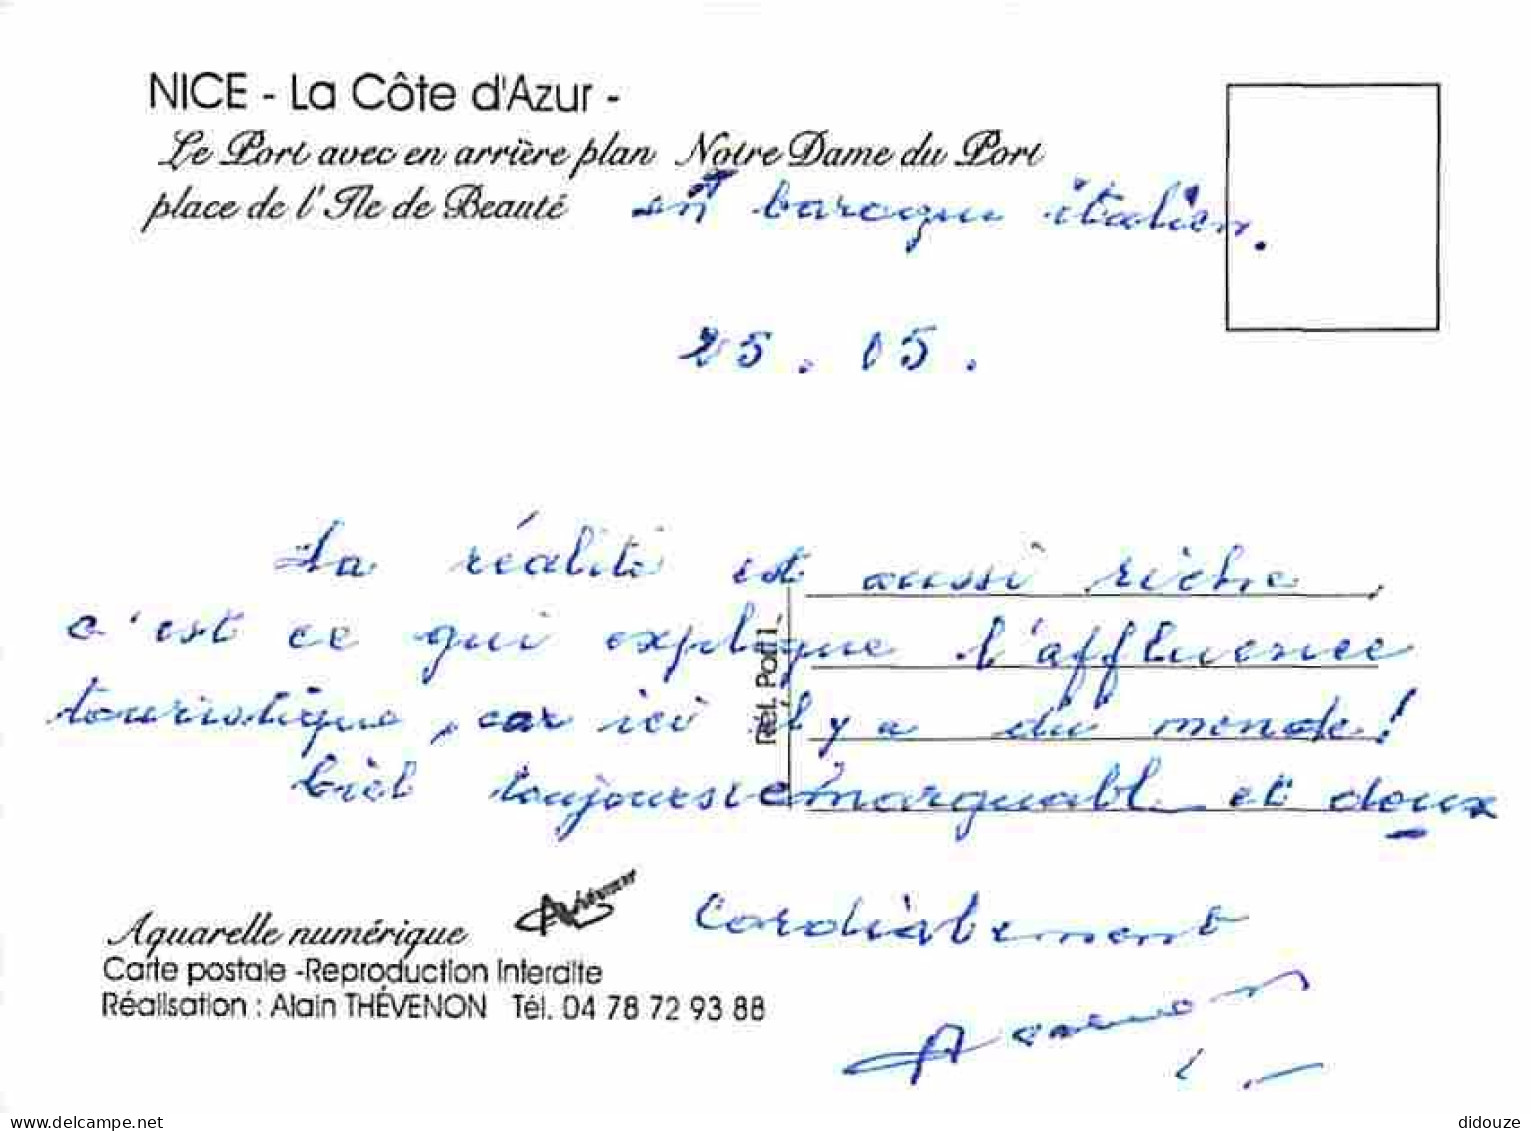 NICE - La Côte d'Azur -
Le Port avec en arrière plan Notre Dame du Port
place de l'Ile de Beauté en baroque italien.
25. 05.
La réalité est aussi riche,
c'est ce qui explique l'affluence
touristique, car ici il y a du monde!
toujours remarquable et doux
Réf. Port 1
Aquarelle numérique
Cordialement
Carte postale -Reproduction Interdite
Réalisation : Alain THÉVENON Tél. 04 78 72 93 88
www.delcampe.net
didouze